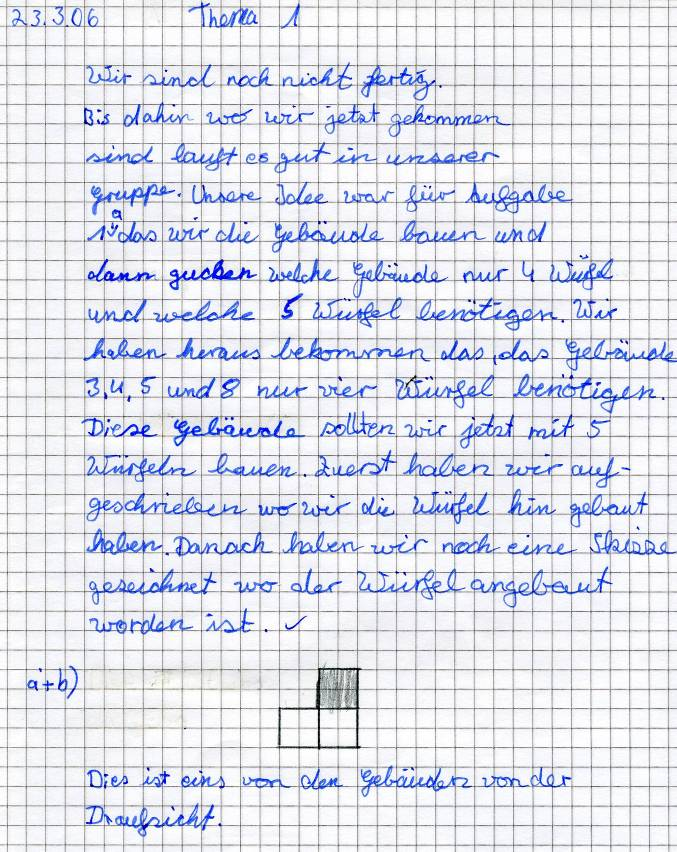 23.3.06 Thema 1
Wir sind noch nicht fertig.
Bis dahin wo wir jetzt gekommen
sind lauft es gut in unserer
gruppe. Unsere Idee war für Aufgabe
1a das wir die Gebäude bauen und
dann gucken welche Gebäude nur 4 Würfel
und welche 5 Würfel benötigen. Wir
haben heraus bekommen das, das Gebäude
3,4, 5 und 8 nur vier Würfel benötigen.
Diese Gebäude sollten wir jetzt mit 5
Würfeln bauen. Zuerst haben wir auf-
geschrieben wo wir die Würfel hin gebaut
haben. Danach haben wir noch eine Skizze
gezeichnet wo der Würfel angebaut
worden ist. ✓
a+b)
Dies ist eins von den Gebäuden von der
Draufsicht.